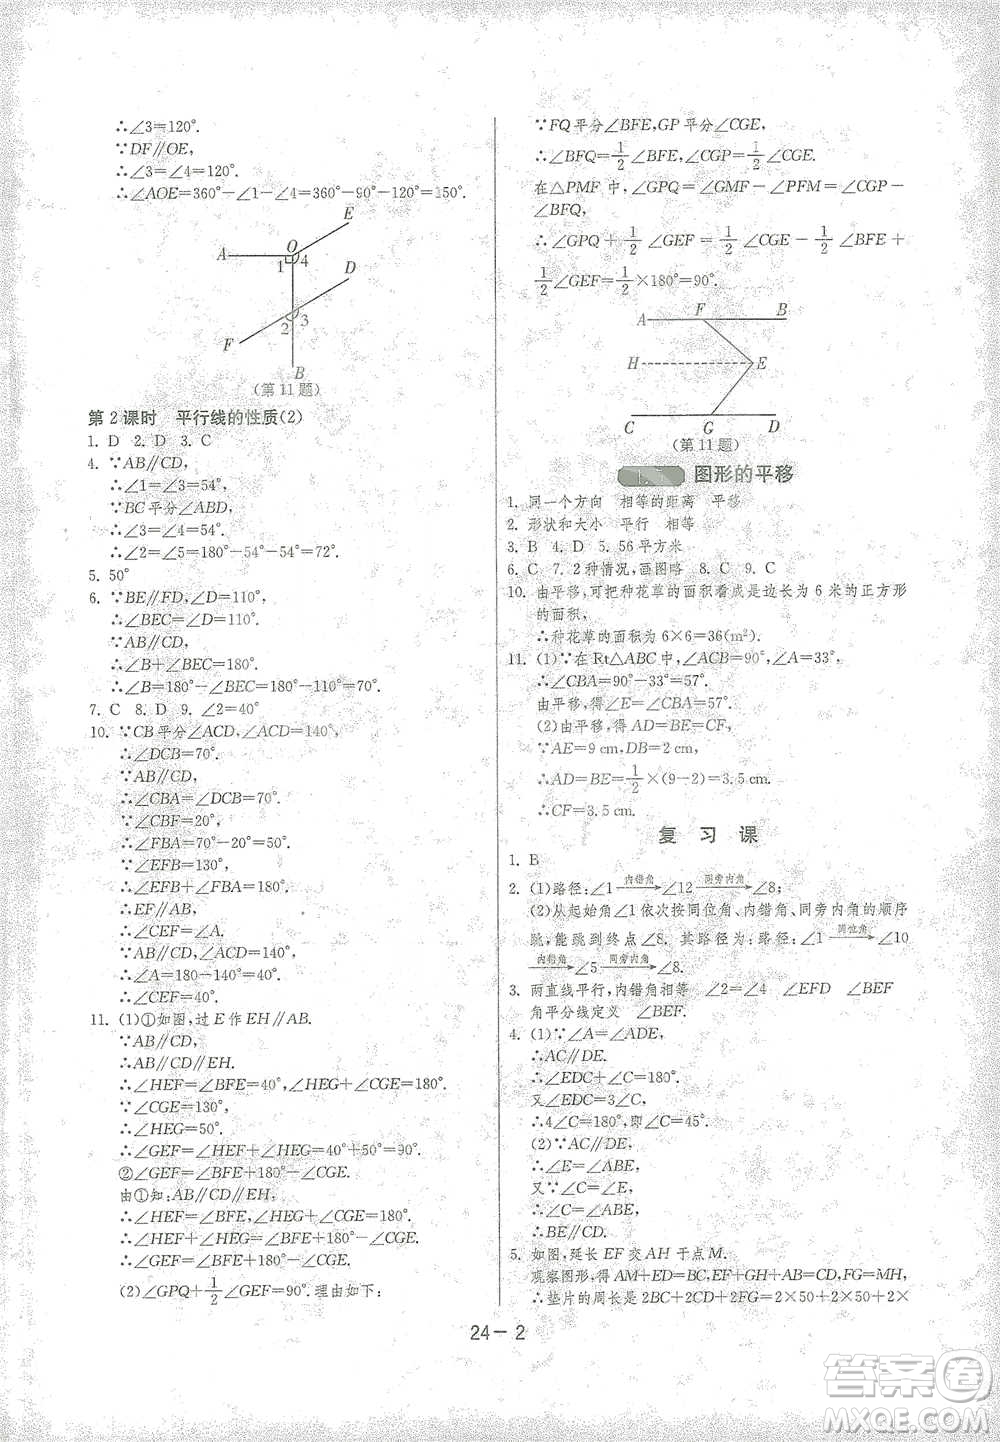 ∴∠3=120°.
∵DF∥OE,
∴∠3=∠4=120°.
∴∠AOE=360°-∠1-∠4=360°-90°-120°=150°.
E
A
O
1
4
D
2
3
F
B
(第11题)
第2课时 平行线的性质(2)
1. D 2. D 3. C
4. ∵AB∥CD,
∴∠1=∠3=54°.
∵BC平分∠ABD,
∴∠3=∠4=54°.
∴∠2=∠5=180°-54°-54°=72°.
5. 50°
6. ∵BE∥FD,∠D=110°,
∴∠BEC=∠D=110°.
∵AB∥CD,
∴∠B+∠BEC=180°.
∴∠B=180°-∠BEC=180°-110°=70°.
7. C 8. D 9. ∠2=40°
10. ∵CB平分∠ACD,∠ACD=140°,
∴∠DCB=70°.
∵AB∥CD,
∴∠CBA=∠DCB=70°.
∵∠CBF=20°,
∴∠FBA=70°-20°=50°.
∵∠EFB=130°,
∴∠EFB+∠FBA=180°.
∴EF∥AB,
∴∠CEF=∠A.
∵AB∥CD,∠ACD=140°,
∴∠A=180-140°=40°.
∴∠CEF=40°.
11. (1)①如图,过E作EH∥AB.
∵AB∥CD,
∴AB∥CD∥EH.
∴∠HEF=∠BFE=40°,∠HEG+∠CGE=180°.
∵∠CGE=130°,
∴∠HEG=50°.
∴∠GEF=∠HEF+∠HEG=40°+50°=90°.
②∠GEF=∠BFE+180°-∠CGE.
由①知:AB∥CD∥EH,
∴∠HEF=∠BFE,∠HEG+∠CGE=180°.
∴∠HEF+∠HEG+∠CGE=∠BFE+180°.
∴∠GEF=∠BFE+180°-∠CGE.
(2)∠GPQ+1/2∠GEF=90°.理由如下:
∵FQ平分∠BFE,GP平分∠CGE,
∴∠BFQ=1/2∠BFE,∠CGP=1/2∠CGE.
在△PMF中,∠GPQ=∠GMF-∠PFM=∠CGP-
∠BFQ,
∴∠GPQ+1/2∠GEF=1/2∠CGE-1/2∠BFE+
1/2∠GEF=1/2×180°=90°.
A F B
H E
C G D
(第11题)
图形的平移
1. 同一个方向 相等的距离 平移
2. 形状和大小 平行 相等
3. B 4. D 5. 56平方米
6. C 7. 2种情况,画图略 8. C 9. C
10. 由平移,可把种花草的面积看成是边长为6米的正方形
的面积,
∴种花草的面积为6×6=36(m²).
11. (1)∵在Rt△ABC中,∠ACB=90°,∠A=33°,
∴∠CBA=90°-33°=57°.
由平移,得∠E=∠CBA=57°.
(2)由平移,得AD=BE=CF,
∵AE=9 cm,DB=2 cm,
∴AD=BE=1/2×(9-2)=3.5 cm.
∴CF=3.5 cm.
复习课
1. B
2. (1)路径:∠1 内错角→∠12 同旁内角→∠8;
(2)从起始角∠1依次按同位角、内错角、同旁内角的顺序
跳,能跳到终点∠8.其路径为:路径:∠1 同位角→∠10
内错角→∠5 同旁内角→∠8.
3. 两直线平行,内错角相等 ∠2=∠4 ∠EFD ∠BEF
角平分线定义 ∠BEF.
4. (1)∵∠A=∠ADE,
∴AC∥DE.
∴∠EDC+∠C=180°.
又∠EDC=3∠C,
∴4∠C=180°,即∠C=45°.
(2)∵AC∥DE,
∴∠E=∠ABE,
又∵∠C=∠E,
∴∠C=∠ABE,
∴BE∥CD.
5. 如图,延长EF交AH于点M.
观察图形,得AM+ED=BC,EF+GH+AB=CD,FG=MH,
∴垫片的周长是2BC+2CD+2FG=2×50+2×50+2×
24-2
答案卷
MXQE.COM